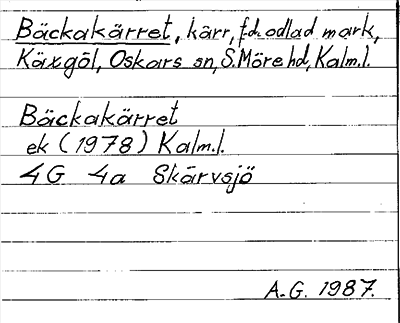 Bäckakärret, kärr, f.d. odlad mark,
Käxgöl, Oskars sn, S. Möre hd, Kalm.l.
Bäckakärret
ek (1978) Kalm.l.
4G 4a Skärvsjö
A.G. 1987.